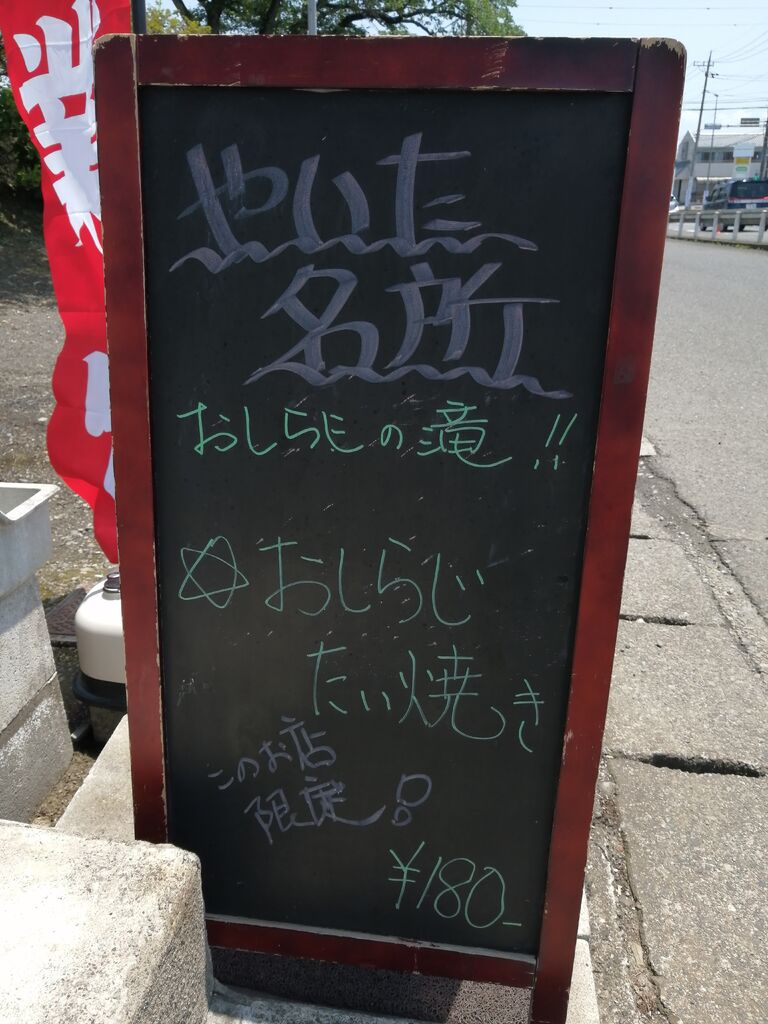 やいた
名所
おしらじの滝!!
☆おしらじ
たい焼き
このお店
限定!
¥180-